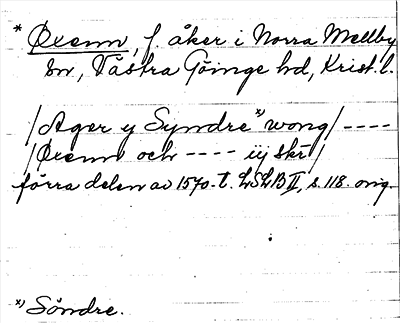 * Øxenn, f. åker i Norra Mellby
sn, Västra Göinge hd, Krist. l.
/Ager y Syndre x) wong/ ----
/Øxenn och ---- iij skr/
förra delen av 1570-t. LSLB II, s. 118. orig.
x) Söndre.